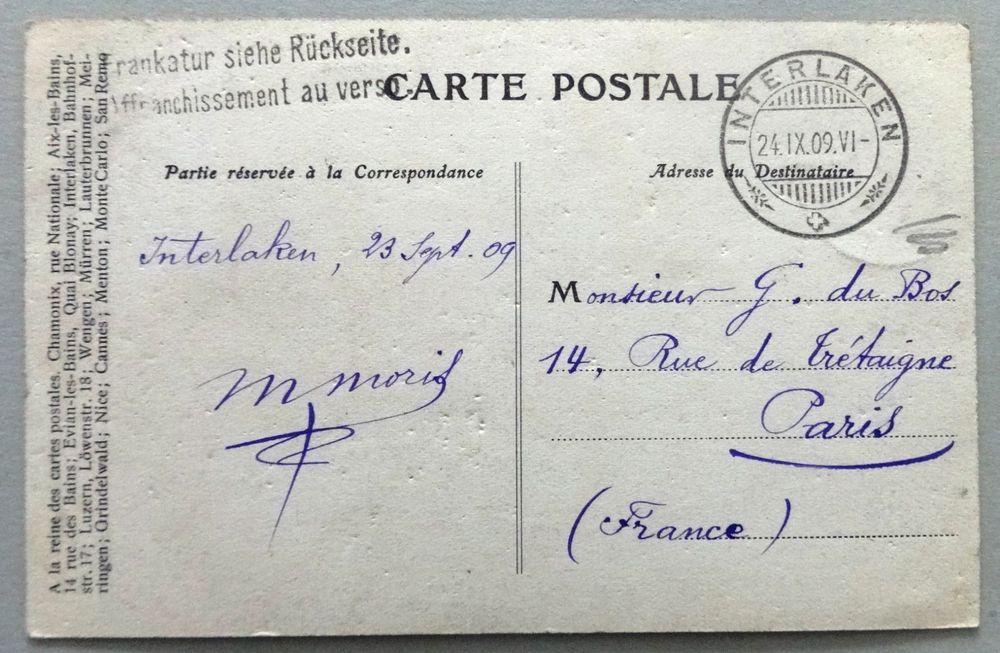 Frankatur siehe Rückseite.
Affranchissement au verso.
CARTE POSTALE
INTERLAKEN
24.IX.09.VI-
Partie réservée à la Correspondance
Adresse du Destinataire
Interlaken, 23 Sept. 09
M moris
Monsieur G. du Bos
14, Rue de Trétaigne
Paris
(France)
A la reine des cartes postales. Chamonix, rue Nationale; Aix-les-Bains,
14 rue des Bains; Evian-les-Bains, Quai Blonay; Interlaken, Bahnhof-
str. 17; Luzern, Löwenstr. 18; Wengen; Mürren; Lauterbrunnen; Mei-
ringen; Grindelwald; Nice; Cannes; Menton; Monte Carlo; San Remo